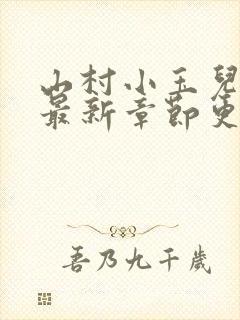 山村小玉兒
最新章節更
吾乃九千歲